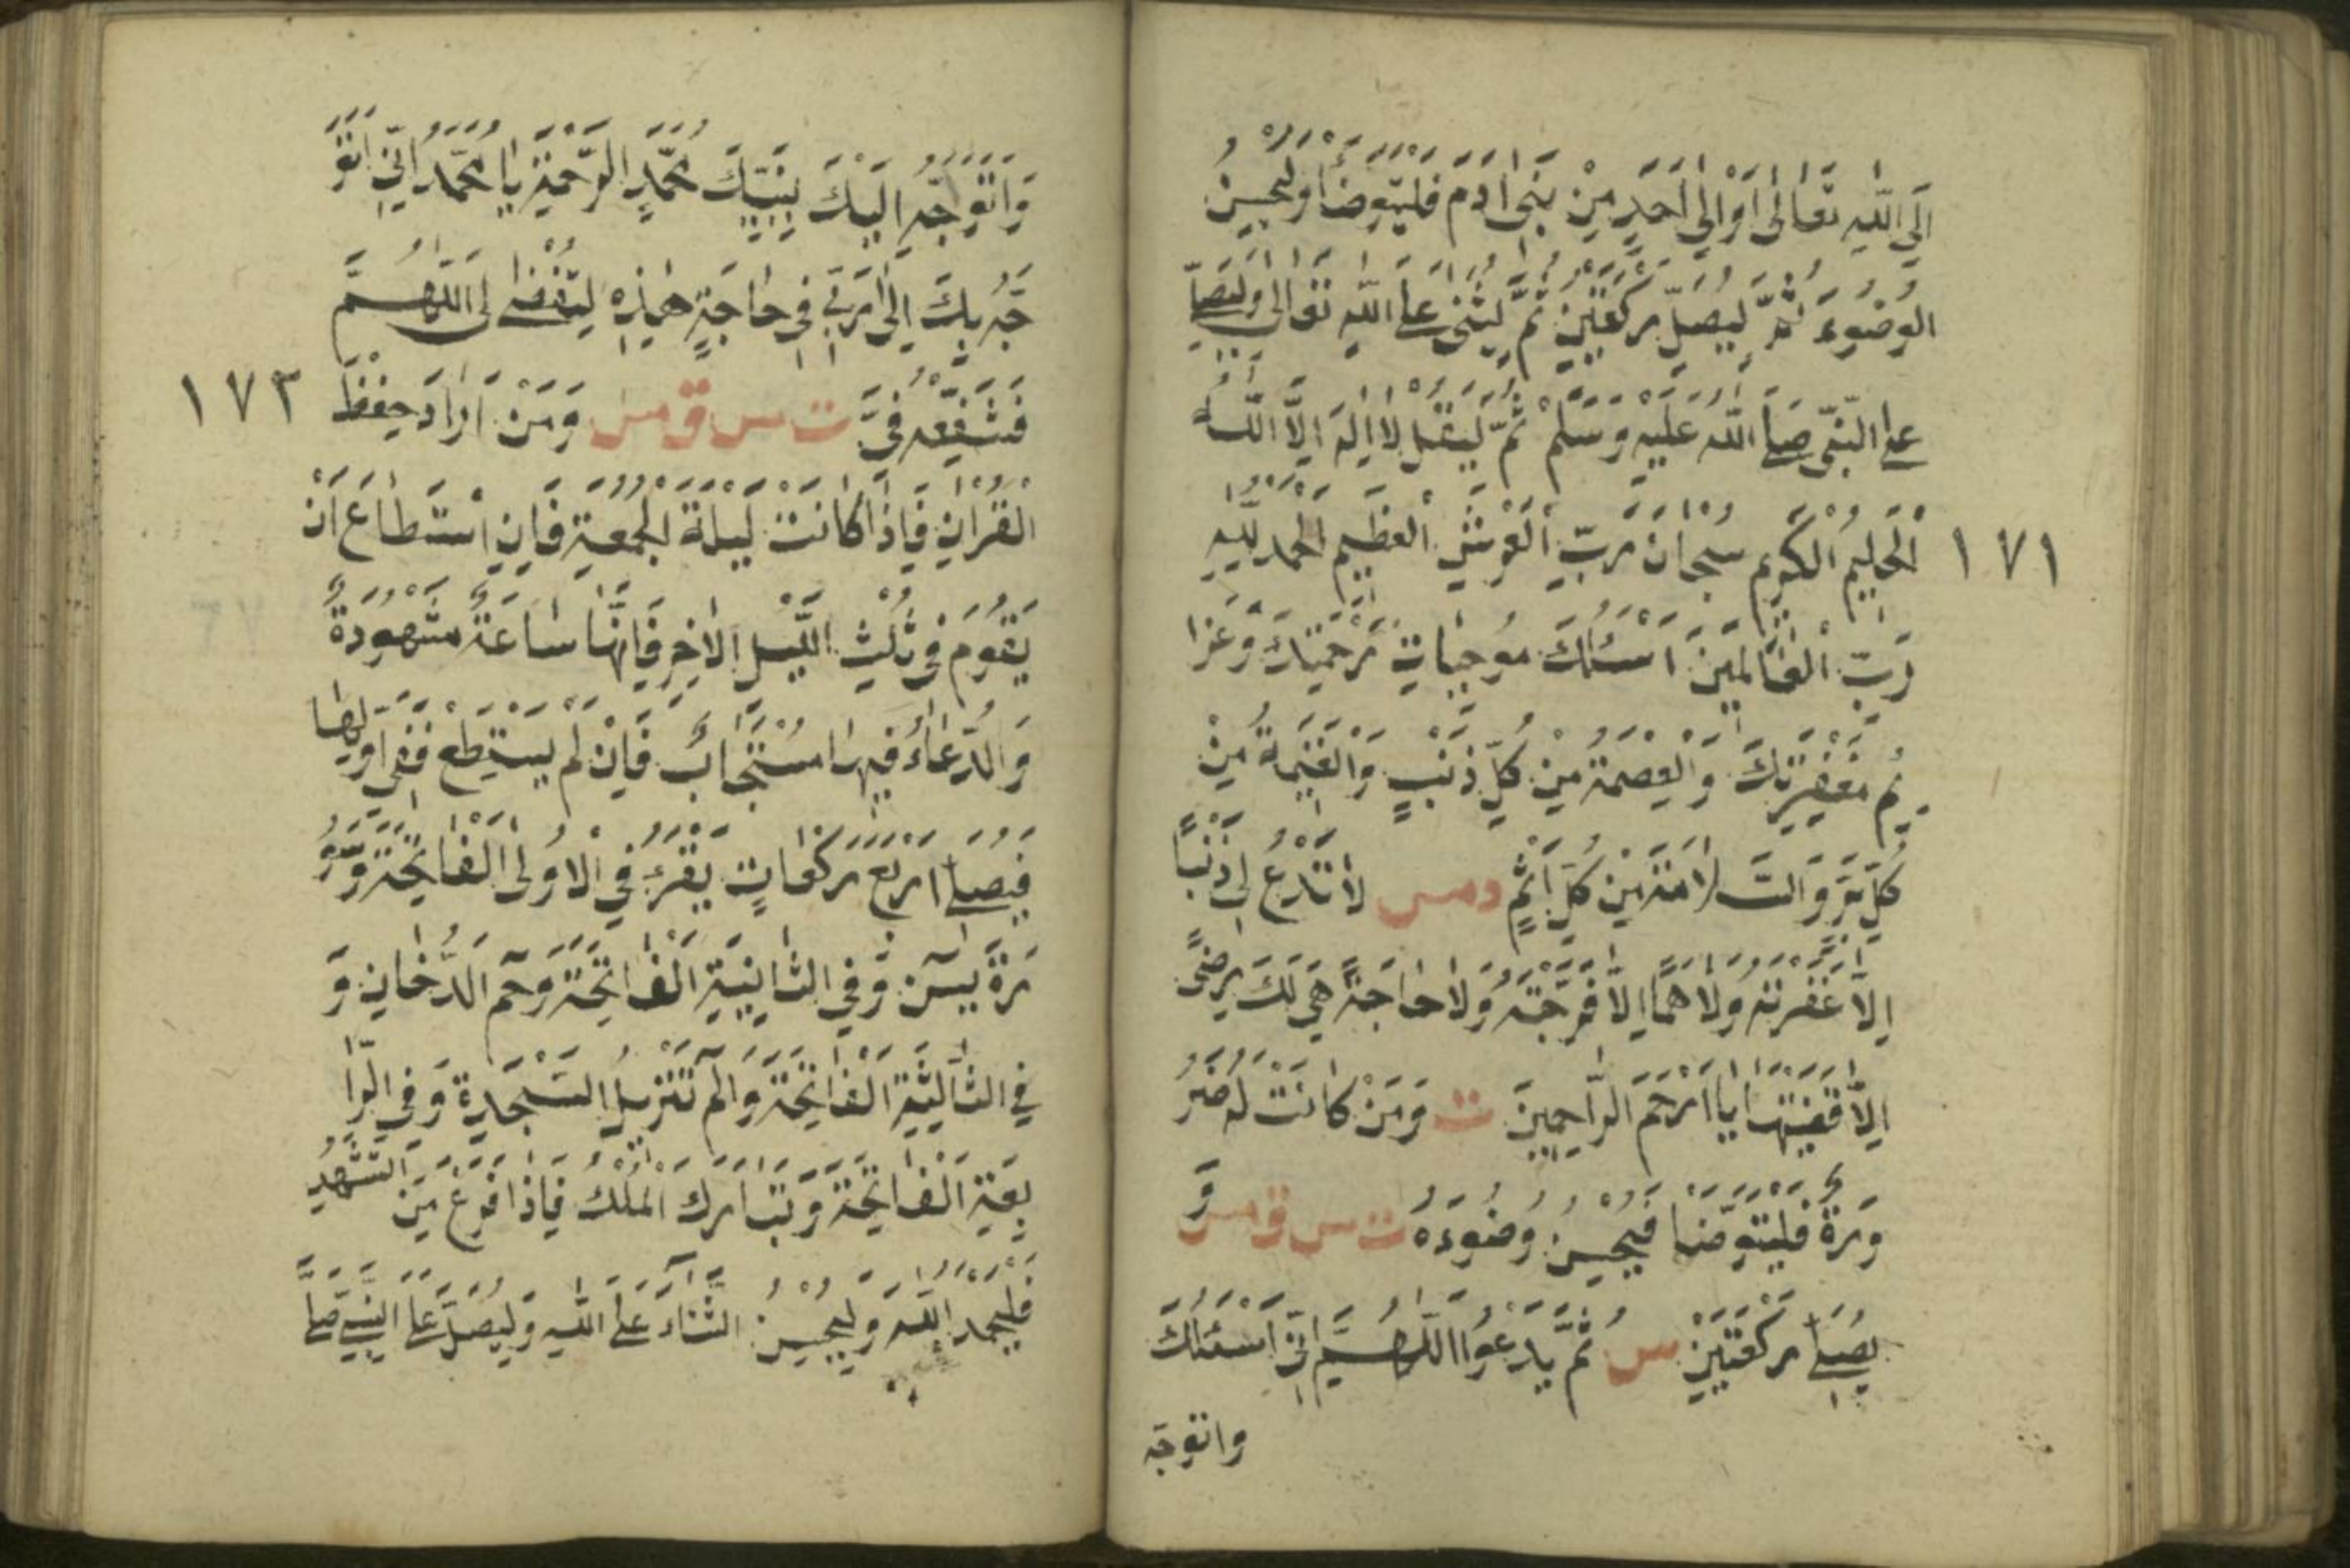 اِلَى اللّٰهِ تَعَالٰى اَوْ اِلٰى اَحَدٍ مِنْ بَنِى اٰدَمَ فَلْيَتَوَضَّأْ وَلْيُحْسِنُ
الْوُضُوءَ ثُمَّ لْيُصَلِّ رَكْعَتَيْنِ ثُمَّ لْيُثْنِ عَلَى اللّٰهِ تَعَالٰى وَلْيُصَلِّ
عَلَى النَّبِىِّ صَلَّى اللّٰهُ عَلَيْهِ وَسَلَّمْ ثُمَّ لْيَقُلْ لَا اِلٰهَ اِلَّا اللّٰهُ
الْحَلِيمُ الْكَرِيمُ سُبْحَانَ رَبِّ الْعَرْشِ الْعَظِيمِ الْحَمْدُ لِلّٰهِ
١٧١
رَبِّ الْعَالَمِينَ اَسْئَلُكَ مُوجِبَاتِ رَحْمَتِكَ وَعَزَا
ئِمَ مَغْفِرَتِكَ وَالْعِصْمَةَ مِنْ كُلِّ ذَنْبٍ وَالْغَنِيمَةَ مِنْ
كُلِّ بِرٍّ وَالسَّلَامَةَ مِنْ كُلِّ اِثْمٍ دمس لَا تَدَعْ لِى ذَنْبًا
اِلَّا غَفَرْتَهُ وَلَا هَمًّا اِلَّا فَرَّجْتَهُ وَلَا حَاجَةً هِىَ لَكَ رِضًى
اِلَّا قَضَيْتَهَا يَا اَرْحَمَ الرَّاحِمِينَ ت وَمَنْ كَانَتْ لَهُ ضَرُ
وَرَةٌ فَلْيَتَوَضَّأْ فَيُحْسِنُ وُضُوءَهُ ت س ق مس وَ
يُصَلِّى رَكْعَتَيْنِ س ثُمَّ يَدْعُوا اللّٰهُمَّ اِنِّى اَسْئَلُكَ
واتوجه
وَاَتَوَجَّهُ اِلَيْكَ بِنَبِيِّكَ مُحَمَّدٍ الرَّحْمَةِ يَا مُحَمَّدُ اِنِّى اَتَوَ
جَّهُ بِكَ اِلٰى رَبِّى فِى حَاجَةٍ هٰذِهِ لِتُقْضٰى لِى اَللّٰهُمَّ
فَشَفِّعْهُ فِىَّ ت س ق مس وَمَنْ اَرَادَ حِفْظَ
١٧٣
الْقُرْاٰنِ فَاِذَا كَانَتْ لَيْلَةُ الْجُمُعَةِ فَاِنِ اسْتَطَاعَ اَنْ
يَقُومَ فِى ثُلُثِ اللَّيْلِ الْاٰخِرِ فَاِنَّهَا سَاعَةٌ مَشْهُودَةٌ
وَالدُّعَاءُ فِيهَا مُسْتَجَابٌ فَاِنْ لَمْ يَسْتَطِعْ فَفِى اَوَّلِهَا
فَيُصَلِّى اَرْبَعَ رَكَعَاتٍ يَقْرَءُ فِى الْاُولَى الْفَاتِحَةَ وَسُو
رَةَ يٰسٓ وَفِى الثَّانِيَةِ الْفَاتِحَةَ وَحٰمٓ الدُّخَانِ وَ
فِى الثَّالِثَةِ الْفَاتِحَةَ وَالٓمٓ تَنْزِيلُ السَّجْدَةِ وَفِى الرَّا
بِعَةِ الْفَاتِحَةَ وَتَبَارَكَ الْمُلْكُ فَاِذَا فَرَغَ مِنَ التَّشَهُّدِ
فَلْيَحْمَدِ اللّٰهَ وَلْيُحْسِنُ الثَّنَاءَ عَلَى اللّٰهِ وَلْيُصَلِّ عَلَى النَّبِىِّ صَلَّى